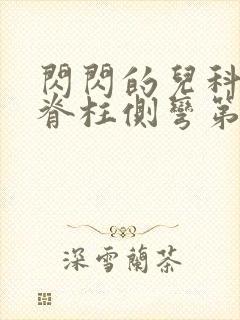 閃閃的兒科
脊柱側彎第
深雪蘭茶